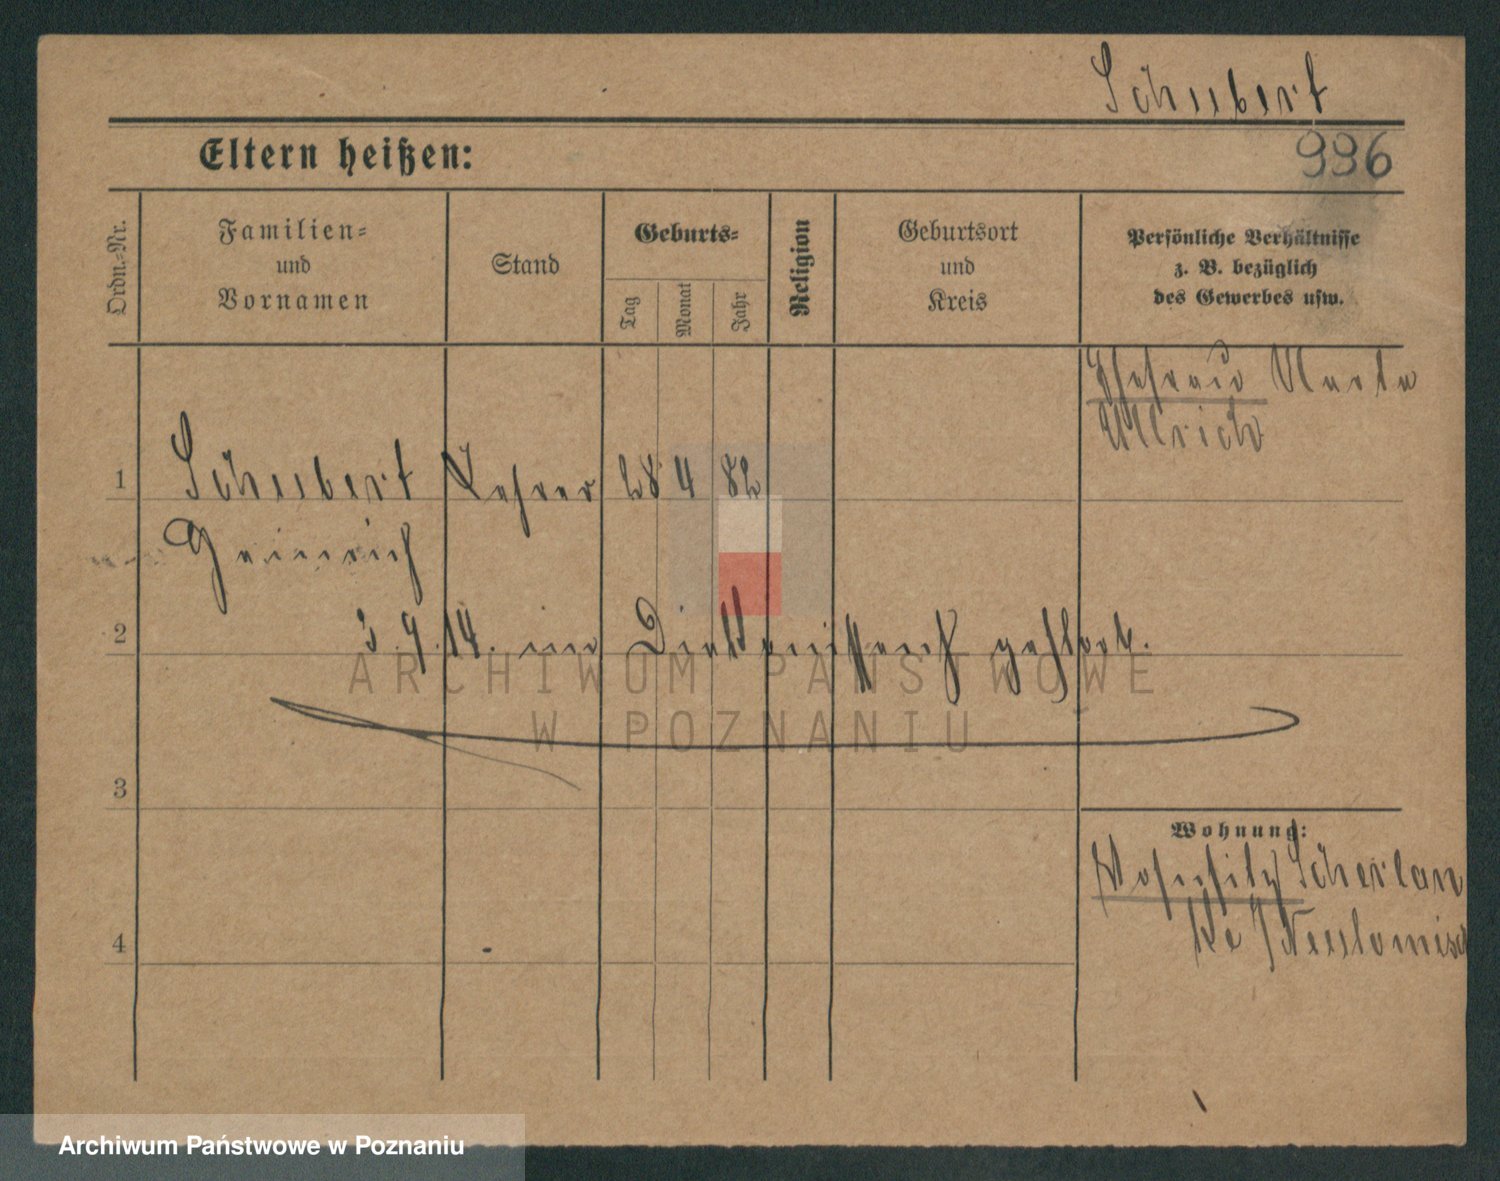 Schubert
Eltern heißen:
996
Ordn.-Nr.
Familien-
und
Vornamen
Stand
Geburts-
Tag
Monat
Jahr
Religion
Geburtsort
und
Kreis
Persönliche Verhältnisse
z. B. bezüglich
des Gewerbes usw.
Ehefrau Marta
Ullrich
1
Schubert Lehrer 28 4 82
Heinrich
2
3.9.14. im
ARCHIWUM PAŃSTWOWE
W POZNANIU
3
Wohnung:
Wohnsitz Scherlan
4
Kr Neutomisch
Archiwum Państwowe w Poznaniu